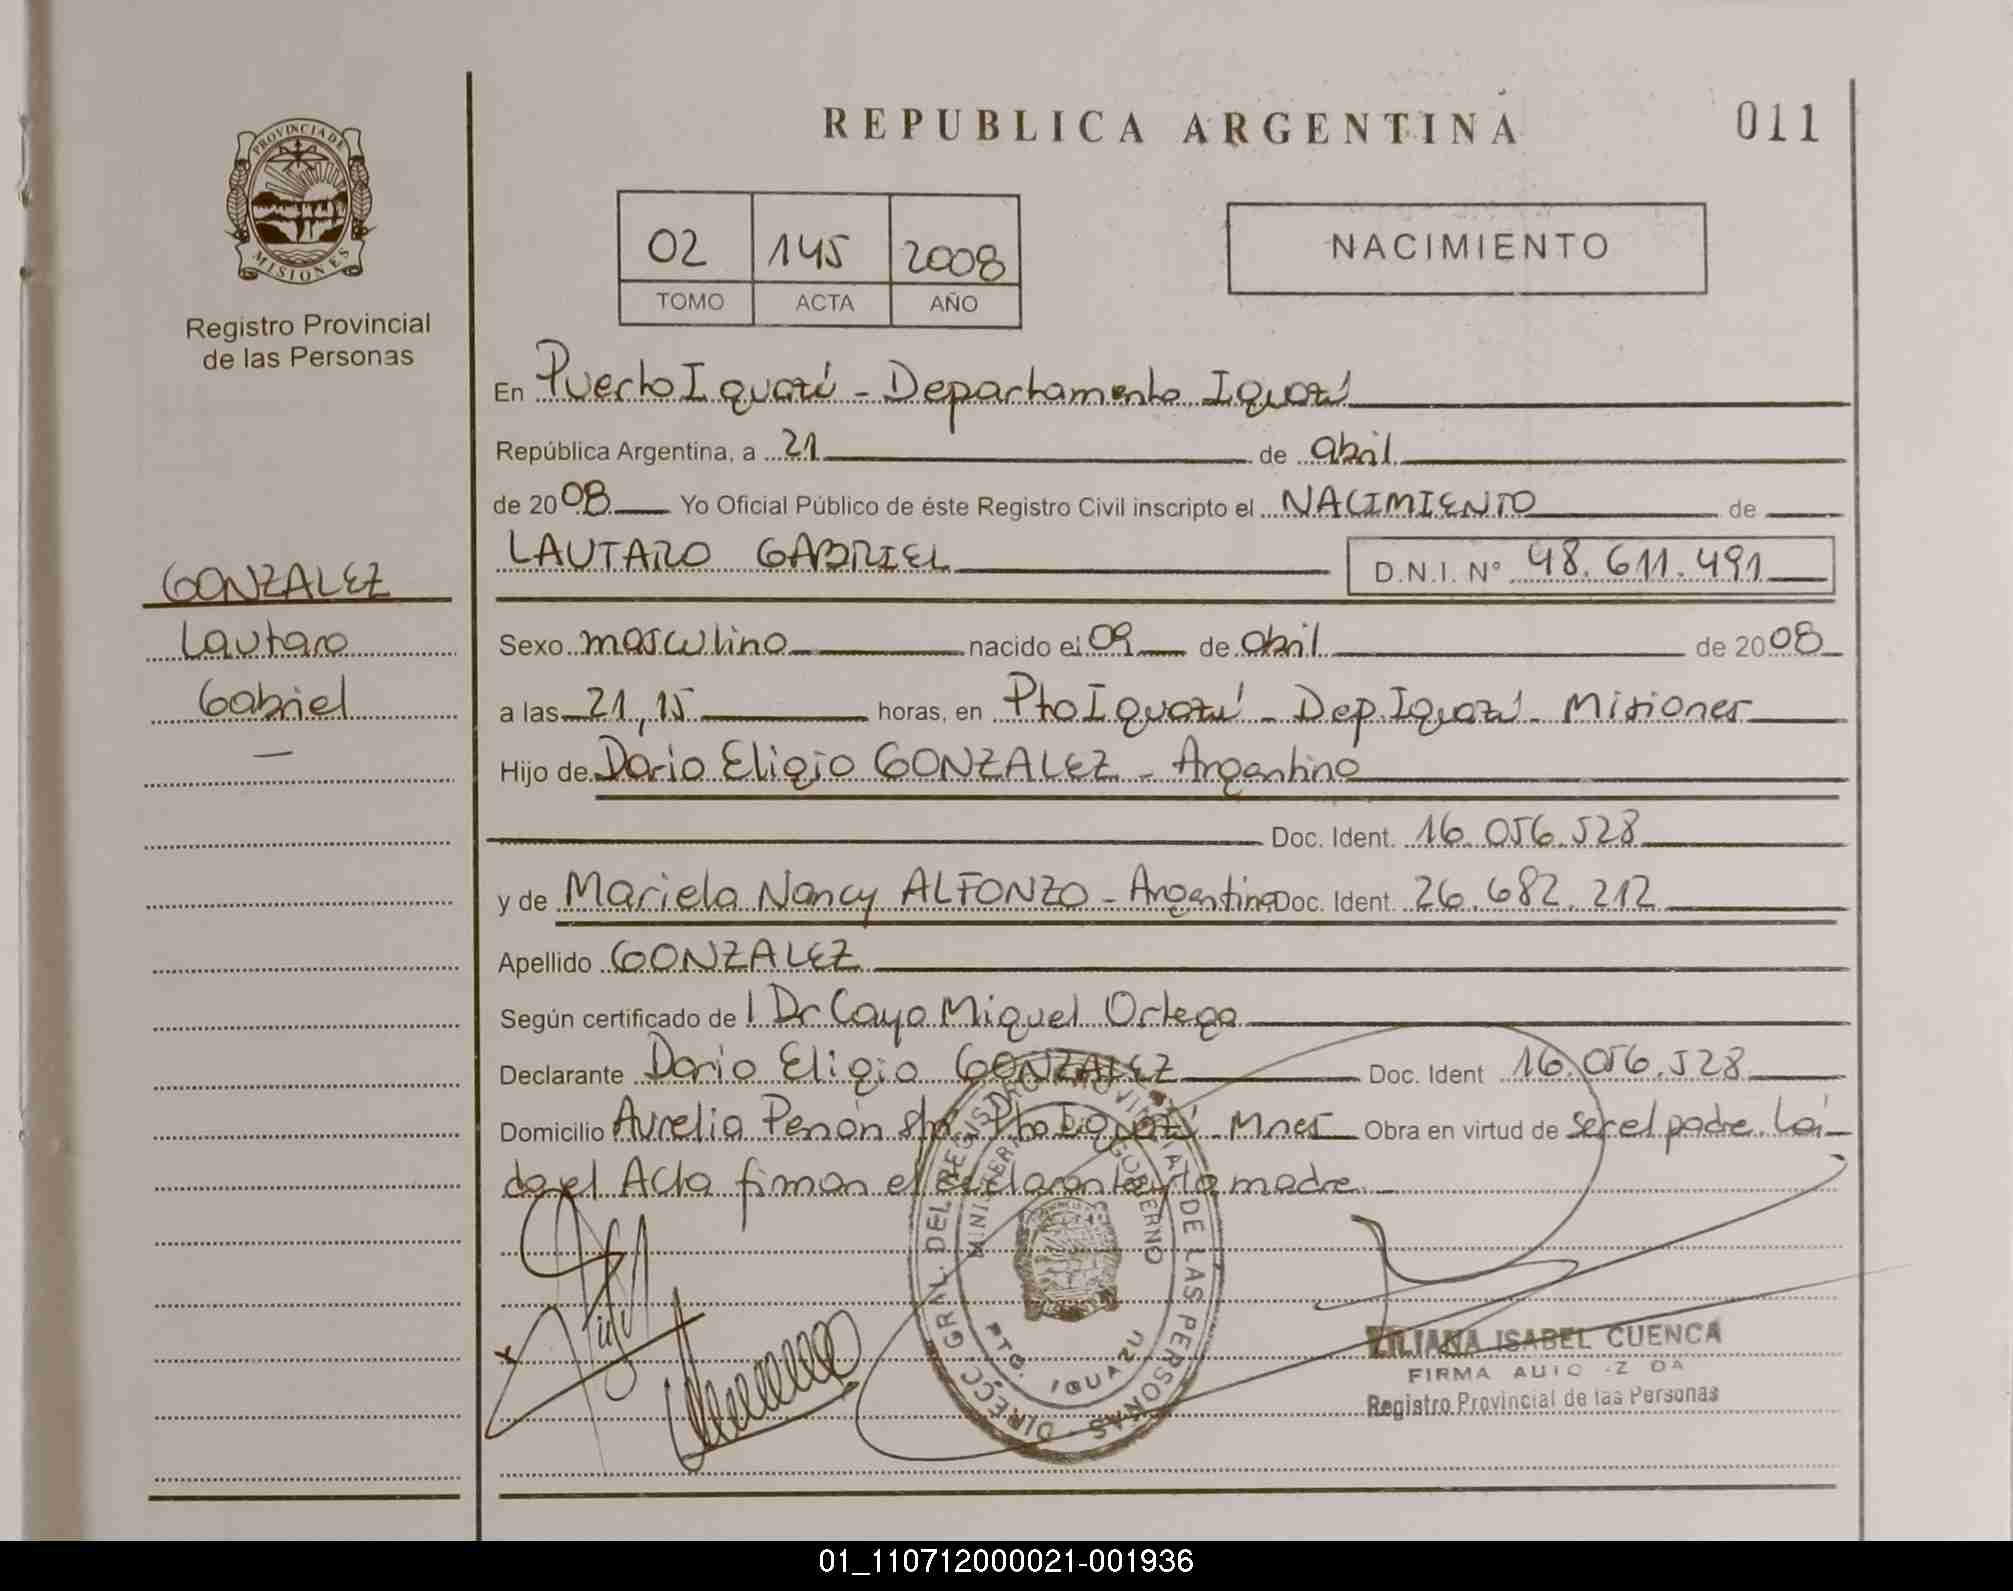 REPUBLICA ARGENTINA
011
PROVINCIA DE MISIONES
Registro Provincial
de las Personas
02 145 2008
TOMO ACTA AÑO
NACIMIENTO
En Puerto Iguazú - Departamento Iguazú
República Argentina, a 21 de abril
de 2008 Yo Oficial Público de éste Registro Civil inscripto el NACIMIENTO de
LAUTARO GABRIEL D.N.I. N° 48.611.491
GONZALEZ
Lautaro
Gabriel
—
Sexo masculino nacido el 09 de abril de 2008
a las 21,15 horas, en Pto Iguazú - Dep. Iguazú - Misiones
Hijo de Dario Eligio GONZALEZ - Argentino
Doc. Ident. 16.056.528
y de Mariela Nancy ALFONZO - Argentina Doc. Ident. 26.682.212
Apellido GONZALEZ
Según certificado de l Dr Cayo Miguel Ortega
Declarante Dario Eligio GONZALEZ Doc. Ident 16.056.528
Domicilio Aurelia Penón s/nº Pto Iguazú - Mnes Obra en virtud de ser el padre. Leí-
da el Acta firman el declarante y la madre
DIRECC. GRAL. DEL REGISTRO PROVINCIAL DE LAS PERSONAS
MINISTERIO GOBIERNO
PTO. IGUAZU
LILIANA ISABEL CUENCA
FIRMA AUTORIZADA
Registro Provincial de las Personas
01_110712000021-001936